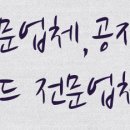 문업체,공
드 전문업체